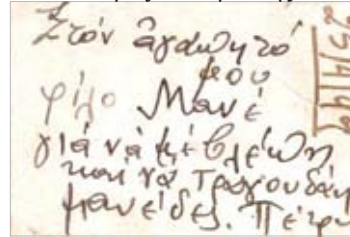 Στόν ἀγαπητό
μου
φίλο Μανέ
γιά νά μέ βλέπη
καί νά τραγουδάη
μανέδες. Πέτρο
25/4/49